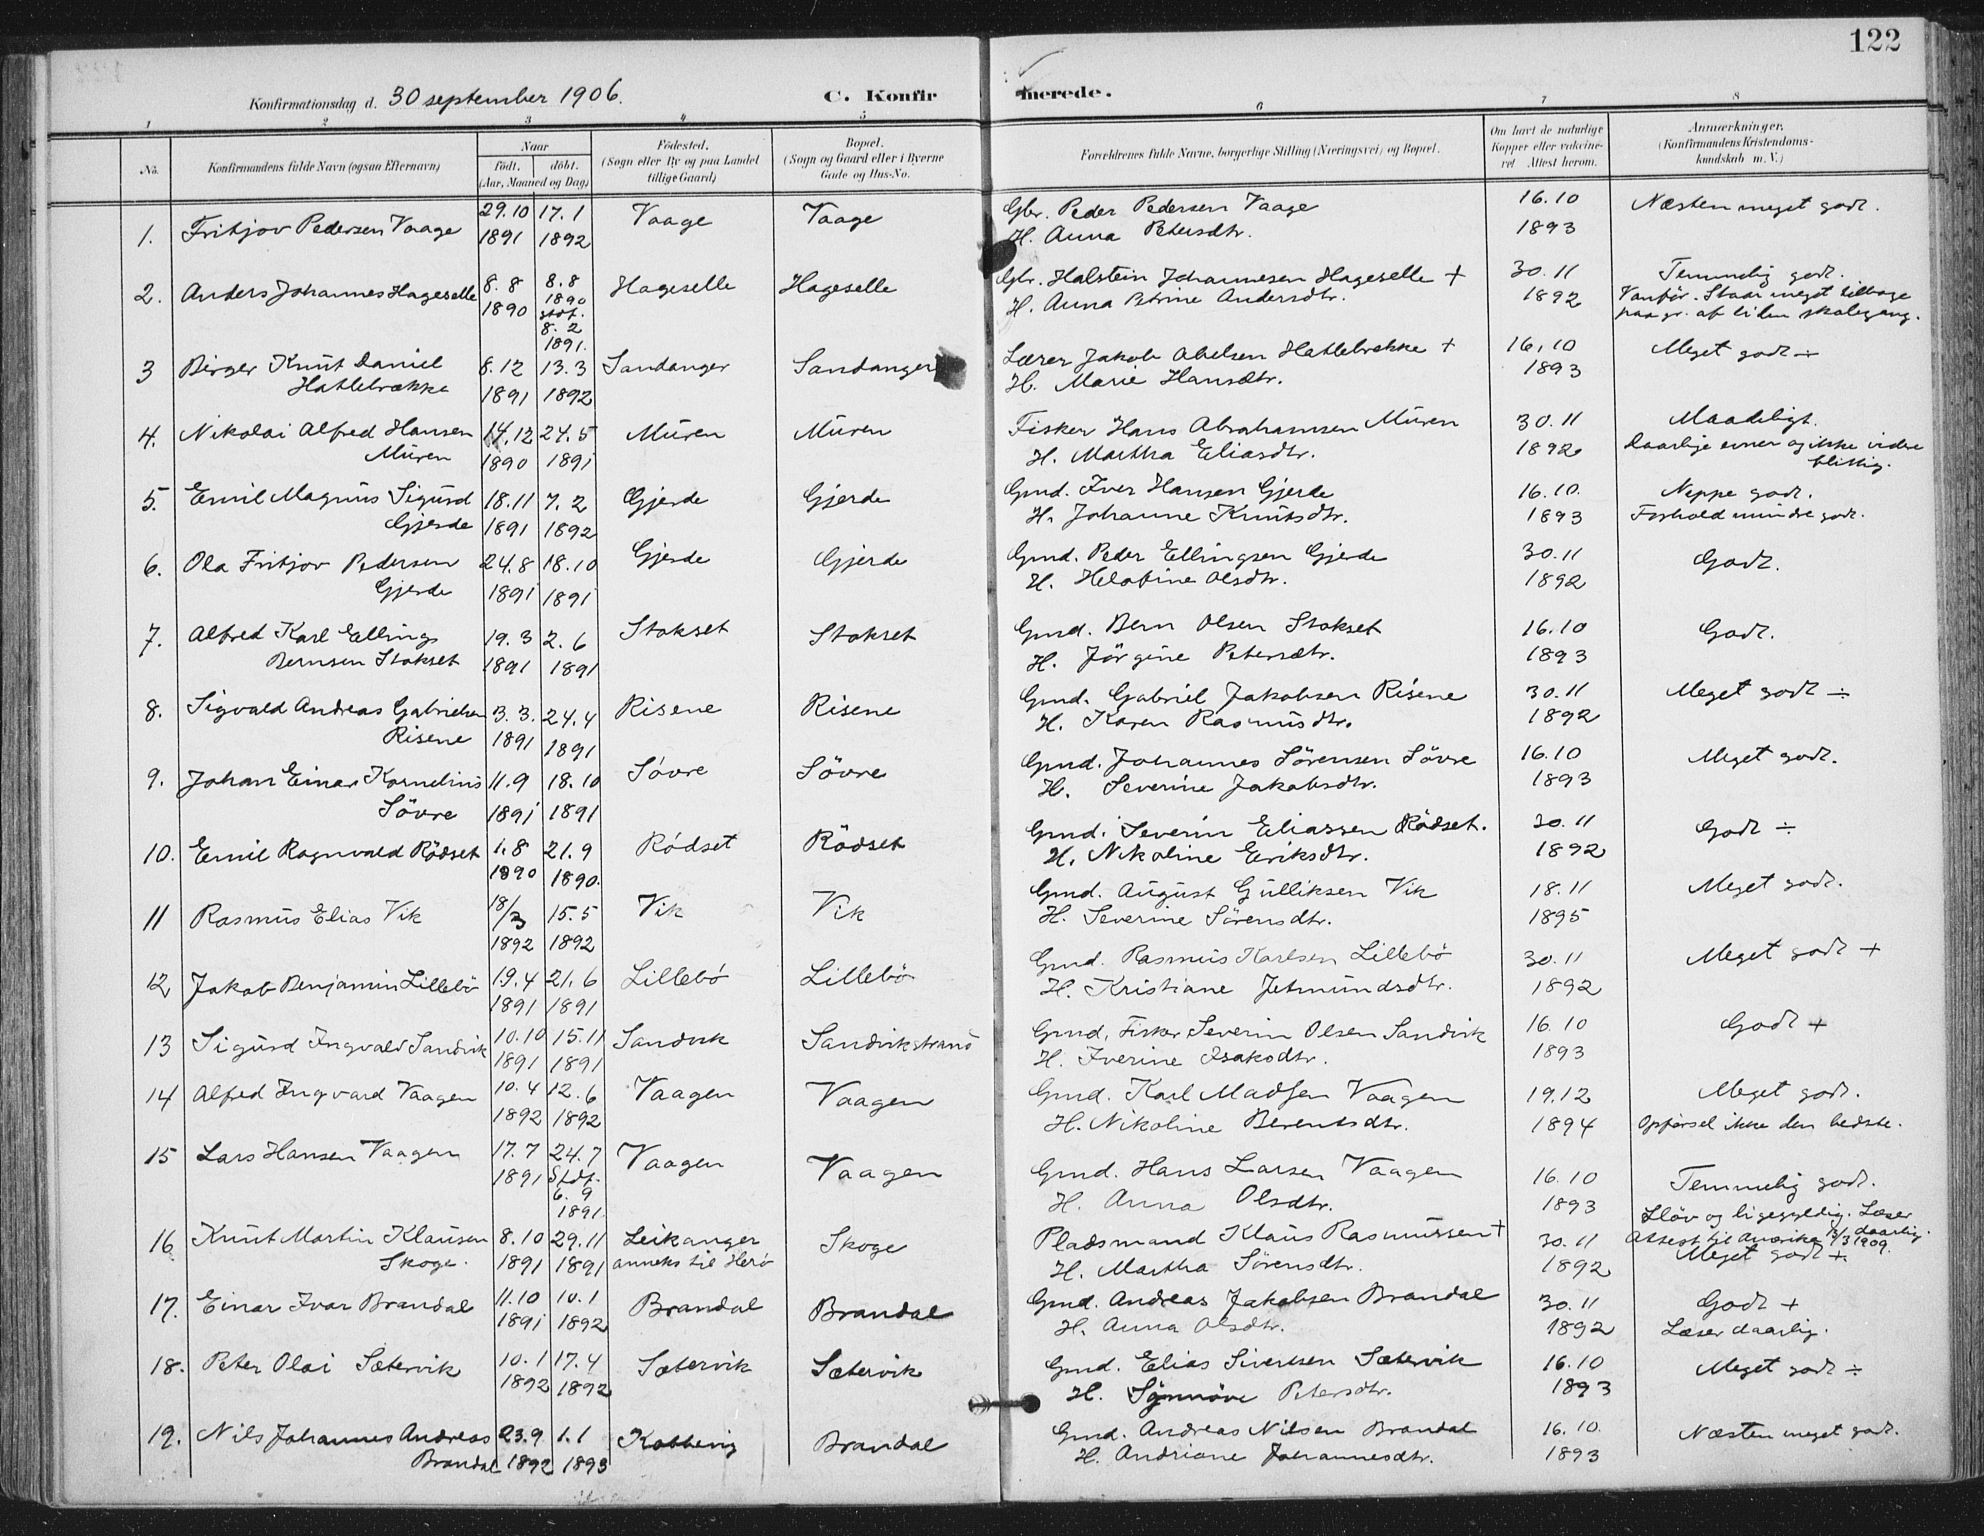 122
Konfirmationsdag d. 30 september 1906. C. Konfirmerede.
1 2 3 4 5 6 7 8
No. Konfirmandens fulde Navn (ogsaa Efternavn) Naar født, døbt. (Aar, Maaned og Dag) Fødested. (Sogn eller By og paa Landet tillige Gaard) Bopæl. (Sogn og Gaard eller i Byerne Gade og Hus-No. Forældrenes fulde Navne, borgerlige Stilling (Næringsvei) og Bopæl. Om havt de naturlige Kopper eller vakcineret. Attest herom. Anmærkninger. (Konfirmandens Kristendomskundskab m. V.)
1. Fritjov Pedersen Vaage 29.10 1891 17.1 1892 Vaage Vaage Gbr. Peder Pedersen Vaage
H. Anna Petersdtr. 16.10 1893 Næsten meget godt.
2. Anders Johannes Hageselle 8.8 1890 8.8 1890 stdf. 8.2 1891. Hageselle Hageselle Gbr. Halstein Johannesen Hageselle +
H. Anna Petrine Andersdtr. 30.11 1892 Temmelig godt.
Vanfør. Staar meget tilbage
paa gr. af liden skolegang.
3 Birger Knut Daniel
Hatlebrække 8.12 1891 13.3 1892 Sandanger Sandanger Lærer Jakob Abelsen Hatlebrække +
H. Marie Hansdtr. 16.10 1893 Meget godt ÷
4. Nikolai Alfred Hansen
Muren 14.12 1890 24.5 1891 Muren Muren Fisker Hans Abrahamsen Muren
H. Martha Eliasdtr. 30.11 1892 Maadeligt.
Daarlige evner og ikke videre
flittig.
5. Emil Magnus Sigurd
Gjerde 18.11 1891 7.2 1892 Gjerde Gjerde Gmd. Iver Hansen Gjerde
H. Johanne Knutsdtr. 16.10. 1893 Neppe godt.
Forhold mindre godt.
6. Ola Fritjov Pedersen
Gjerde 24.8 1891 18.10 1891 Gjerde Gjerde Gmd. Peder Ellingsen Gjerde
H. Olsdtr. 30.11 1892 Godt.
7. Alfred Karl Ellings
Bernsen Stokset 19.3 1891 2.6 1891 Stokset Stokset Gmd. Bern Olsen Stokset
H. Jørgine Petersdtr. 16.10 1893 Godt.
8. Sigvald Andreas Gabrielsen
Risene 3.3. 1891 24.4 1891 Risene Risene Gmd. Gabriel Jakobsen Risene
H. Karen Rasmusdtr. 30.11 1892 Meget godt ÷
9. Johan Einar Kornelius
Søvre 11.9 1891 18.10 1891 Søvre Søvre Gmd. Johannes Sørensen Søvre
H. Severine Jakobsdtr. 16.10 1893 Meget godt.
10. Emil Ragnvald Rødset 1.8 1890 21.9 1890. Rødset Rødset Gmd. Severin Eliassen Rødset.
H. Nikoline Eriksdtr. 30.11 1892 Godt ÷
11 Rasmus Elias Vik 18/3 1892 15.5 1892 Vik Vik Gmd. August Gulliksen Vik
H. Severine Sørensdtr. 18.11 1895 Meget godt.
12 Jakob Benjamin Lillebø 19.4 1891 21.6 1891 Lillebø Lillebø Gmd. Rasmus Karlsen Lillebø
H. Kristiane Jetmundsdtr. 30.11 1892 Meget godt +
13 Sigurd Ingvald Sandvik 10.10 1891 15.11 1891 Sandvik Sandvikstrand Gmd. Fisker Severin Olsen Sandvik
H. Iverine Isaksdtr. 16.10 1893 Godt +
14 Alfred Ingvard Vaagen 10.4 1892 12.6 1892 Vaagen Vaagen Gmd. Karl Madsen Vaagen
H. Nikoline Berentsdtr. 19.12 1894 Meget godt.
Opførsel ikke den bedste.
15 Lars Hansen Vaagen 17.7 1891 24.7 Stdf. 6.9 1891. Vaagen Vaagen Gmd. Hans Larsen Vaagen
H. Anna Olsdtr. 16.10 1893 Temmelig godt.
Sløv og ligegyldig. Læser
daarlig.
Attest til Amerika 12/3 1909.
16 Knut Martin Klausen
Skoge. 8.10 1891 29.11 1891 Leikanger
anneks til Herø Skoge Pladsmand Klaus Rasmussen +
H. Martha Sørensdtr. 30.11 1892 Meget godt +
17. Einar Ivar Brandal 11.10 1891 10.1 1892 Brandal Brandal Gmd. Andreas Jakobsen Brandal
H. Anna Olsdtr. 30.11 1892 Godt +
Læser daarlig.
18. Peter Olai Sætervik 10.1 1892 17.4 1892 Sætervik Sætervik Gmd. Elias Sivertsen Sætervik
H. Synnøve Petersdtr. 16.10 1893 Meget godt ÷
19. Nils Johannes Andreas
Brandal 23.9 1892 1.1 1893 Kobbevig Brandal Gmd. Andreas Nilsen Brandal
H. Andriane Johannesdtr. 16.10. 1893 Næsten meget godt.